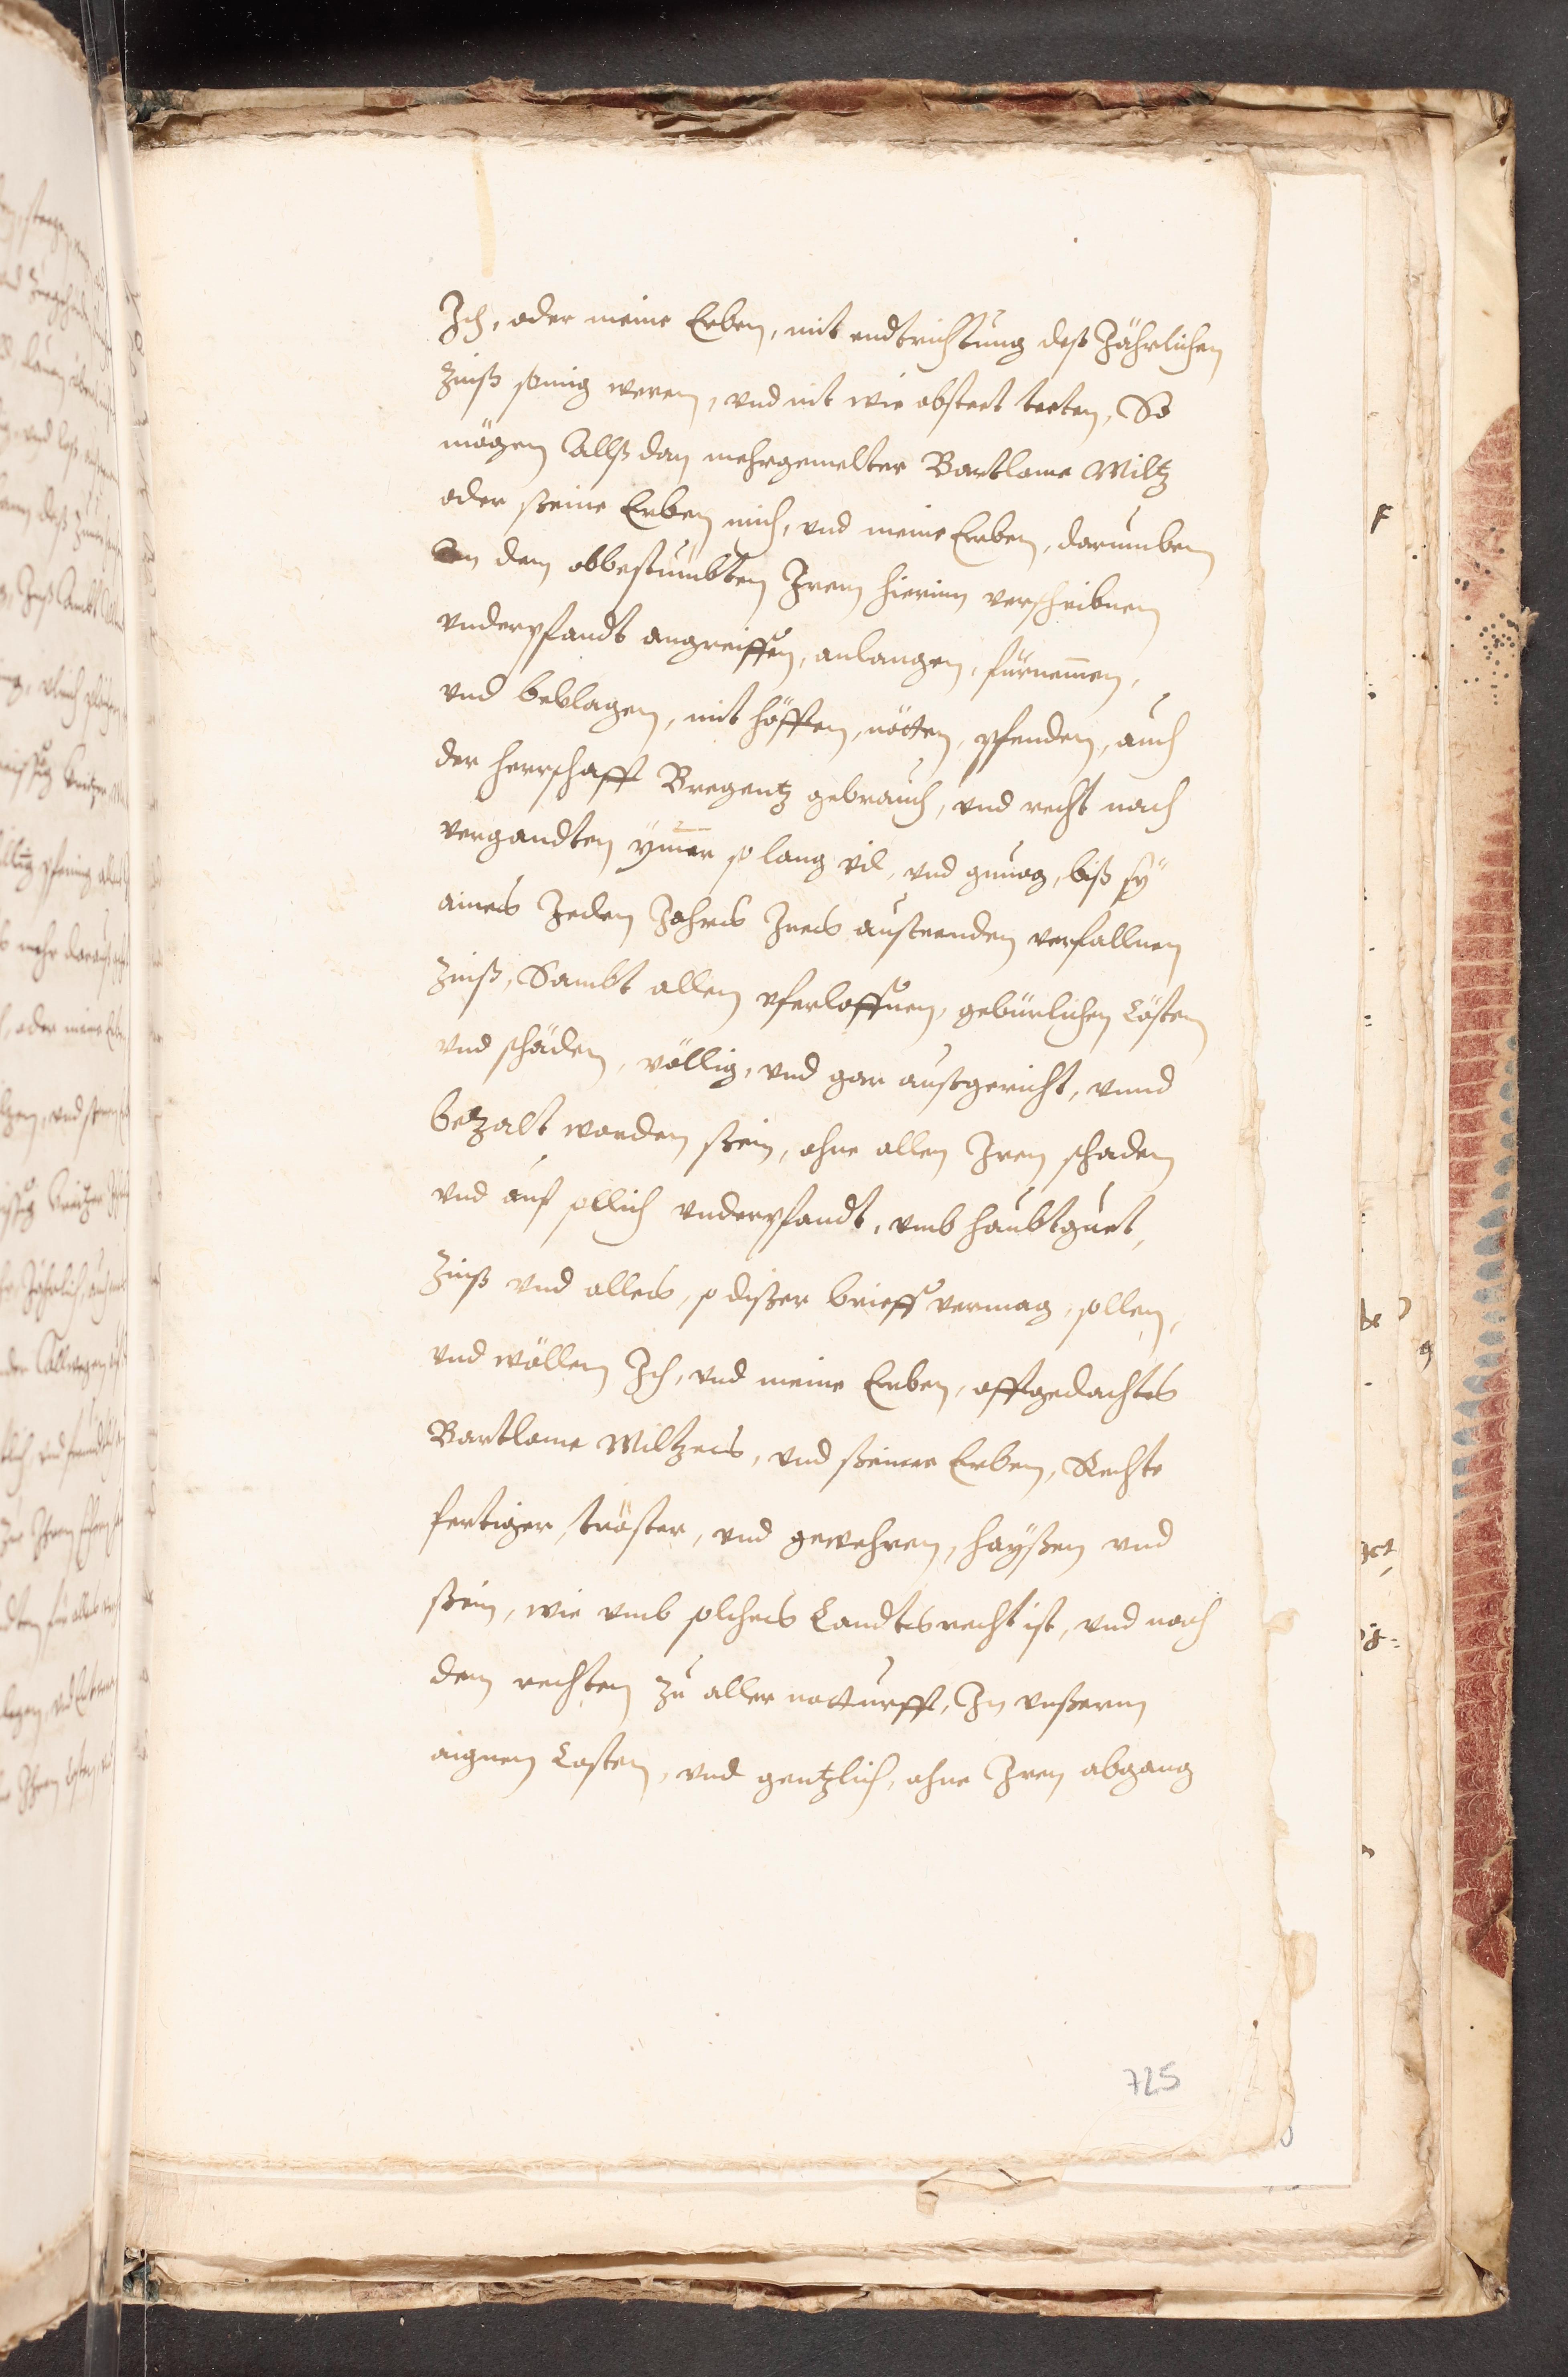 Ich, oder meine Erben, mit endtrichtung deß Jährlichen
Zinß seinig weren, vnd nit wie obsteet teten, So
mögen Allß dan mehrgemelter Bartlame Miltz
oder ßeine Erben mich, vnd meine Erben, darumben
An dem obbestümbten Irem hierinn verschribnen
vnderpfandt angreiffen, anlangen, fürnemen,
vnd beklagen, mit höfften, nötten, pfenden, auch
der herrschafft Bregentz gebrauch, vnd recht nach
vergandten ymer so lang vil, vnd gnuog, biß sÿ
aines Jeden Jahrs Ires austeenden verfallnen
Zinß, Sambt allen vferloffnen, gebürlichen Cösten
vnd schäden, völlig, vnd gar außgericht, vnnd
betzalt worden ßein, ohne allen Iren schaden
vnd auf sollich vnderpfandt, vmb haubtguet,
Zinß vnd alles, so dißer brieff vermag, sollen,
vnd wöllen Ich, vnd meine Erben, offtgedachts
Bartlame Miltzes, vnd ßeiner Erben, Rechte
fertiger, tröster, vnd geweheren, hayßen vnd
ßein, wie vmb solches Landtsrecht ist, vnd nach
dem rechten zu aller notturfft, In vnßerm
aignem Costen, vnd gentzlich, ohne Iren abgang
725